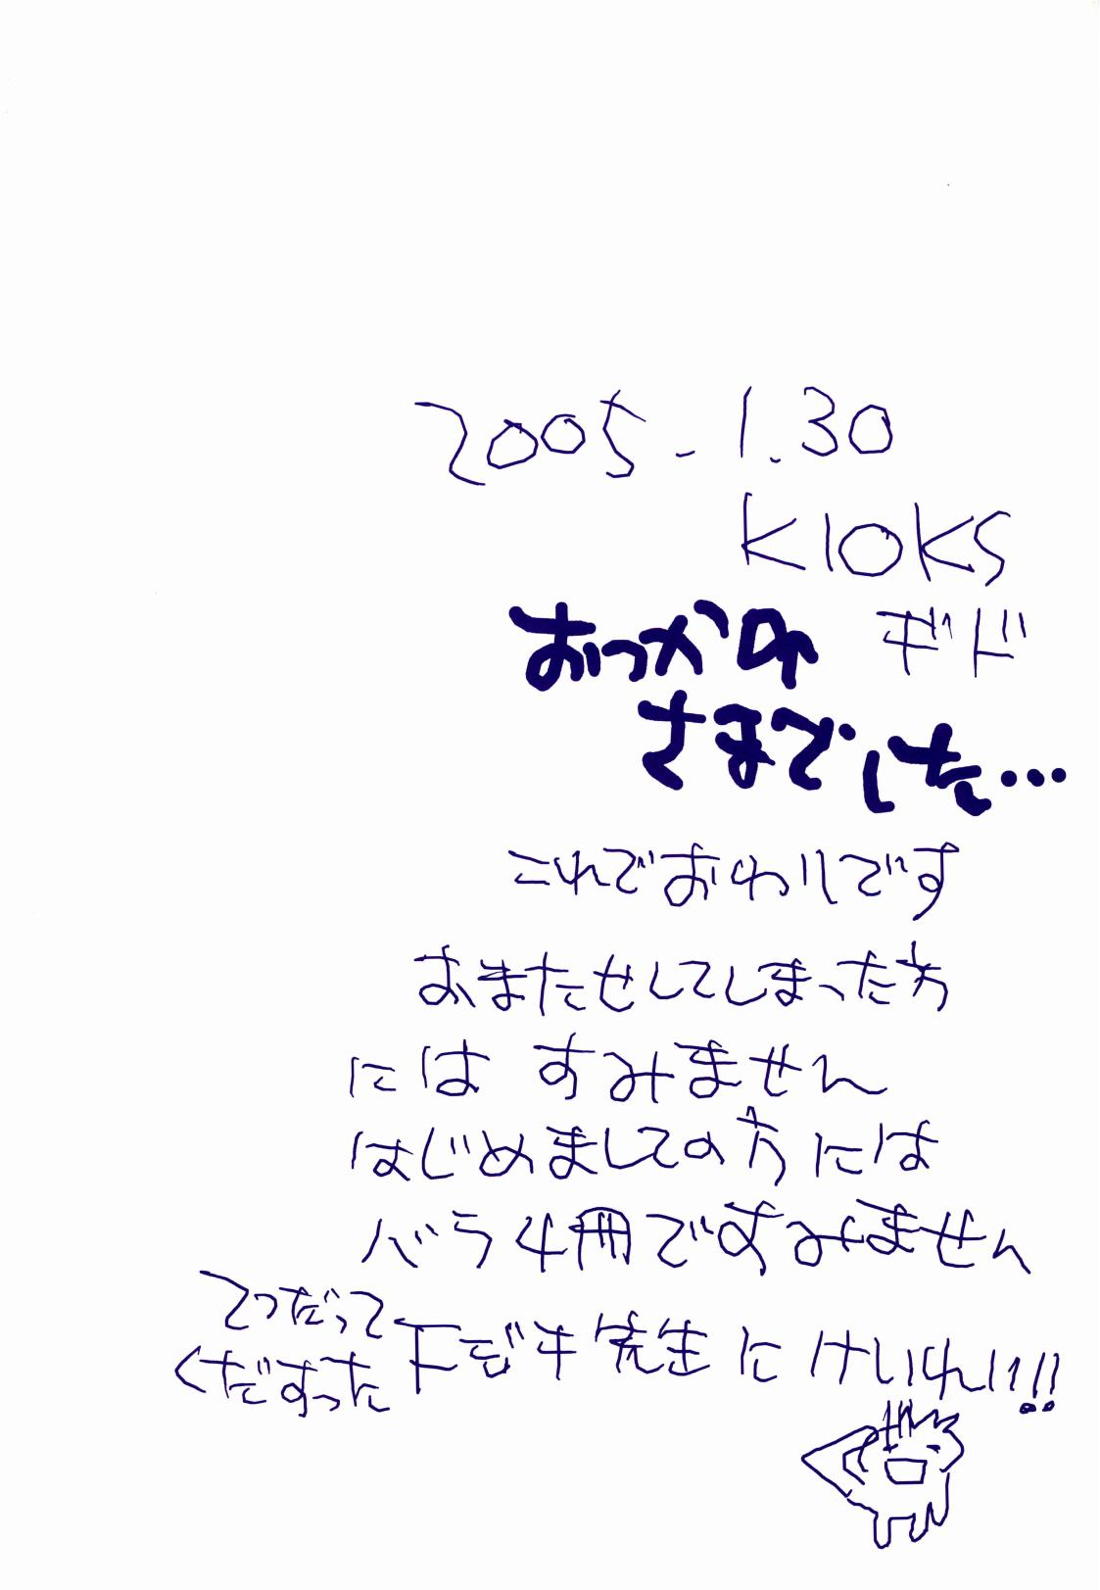 2005-1.30
KIOKS
ギド
おつかれ
さまでした…
これでおわりです
おまたせしてしまった方
には すみません
はじめましての方には
バラ4冊ですみません
てつだって
くだすった
先生にけいれい!!